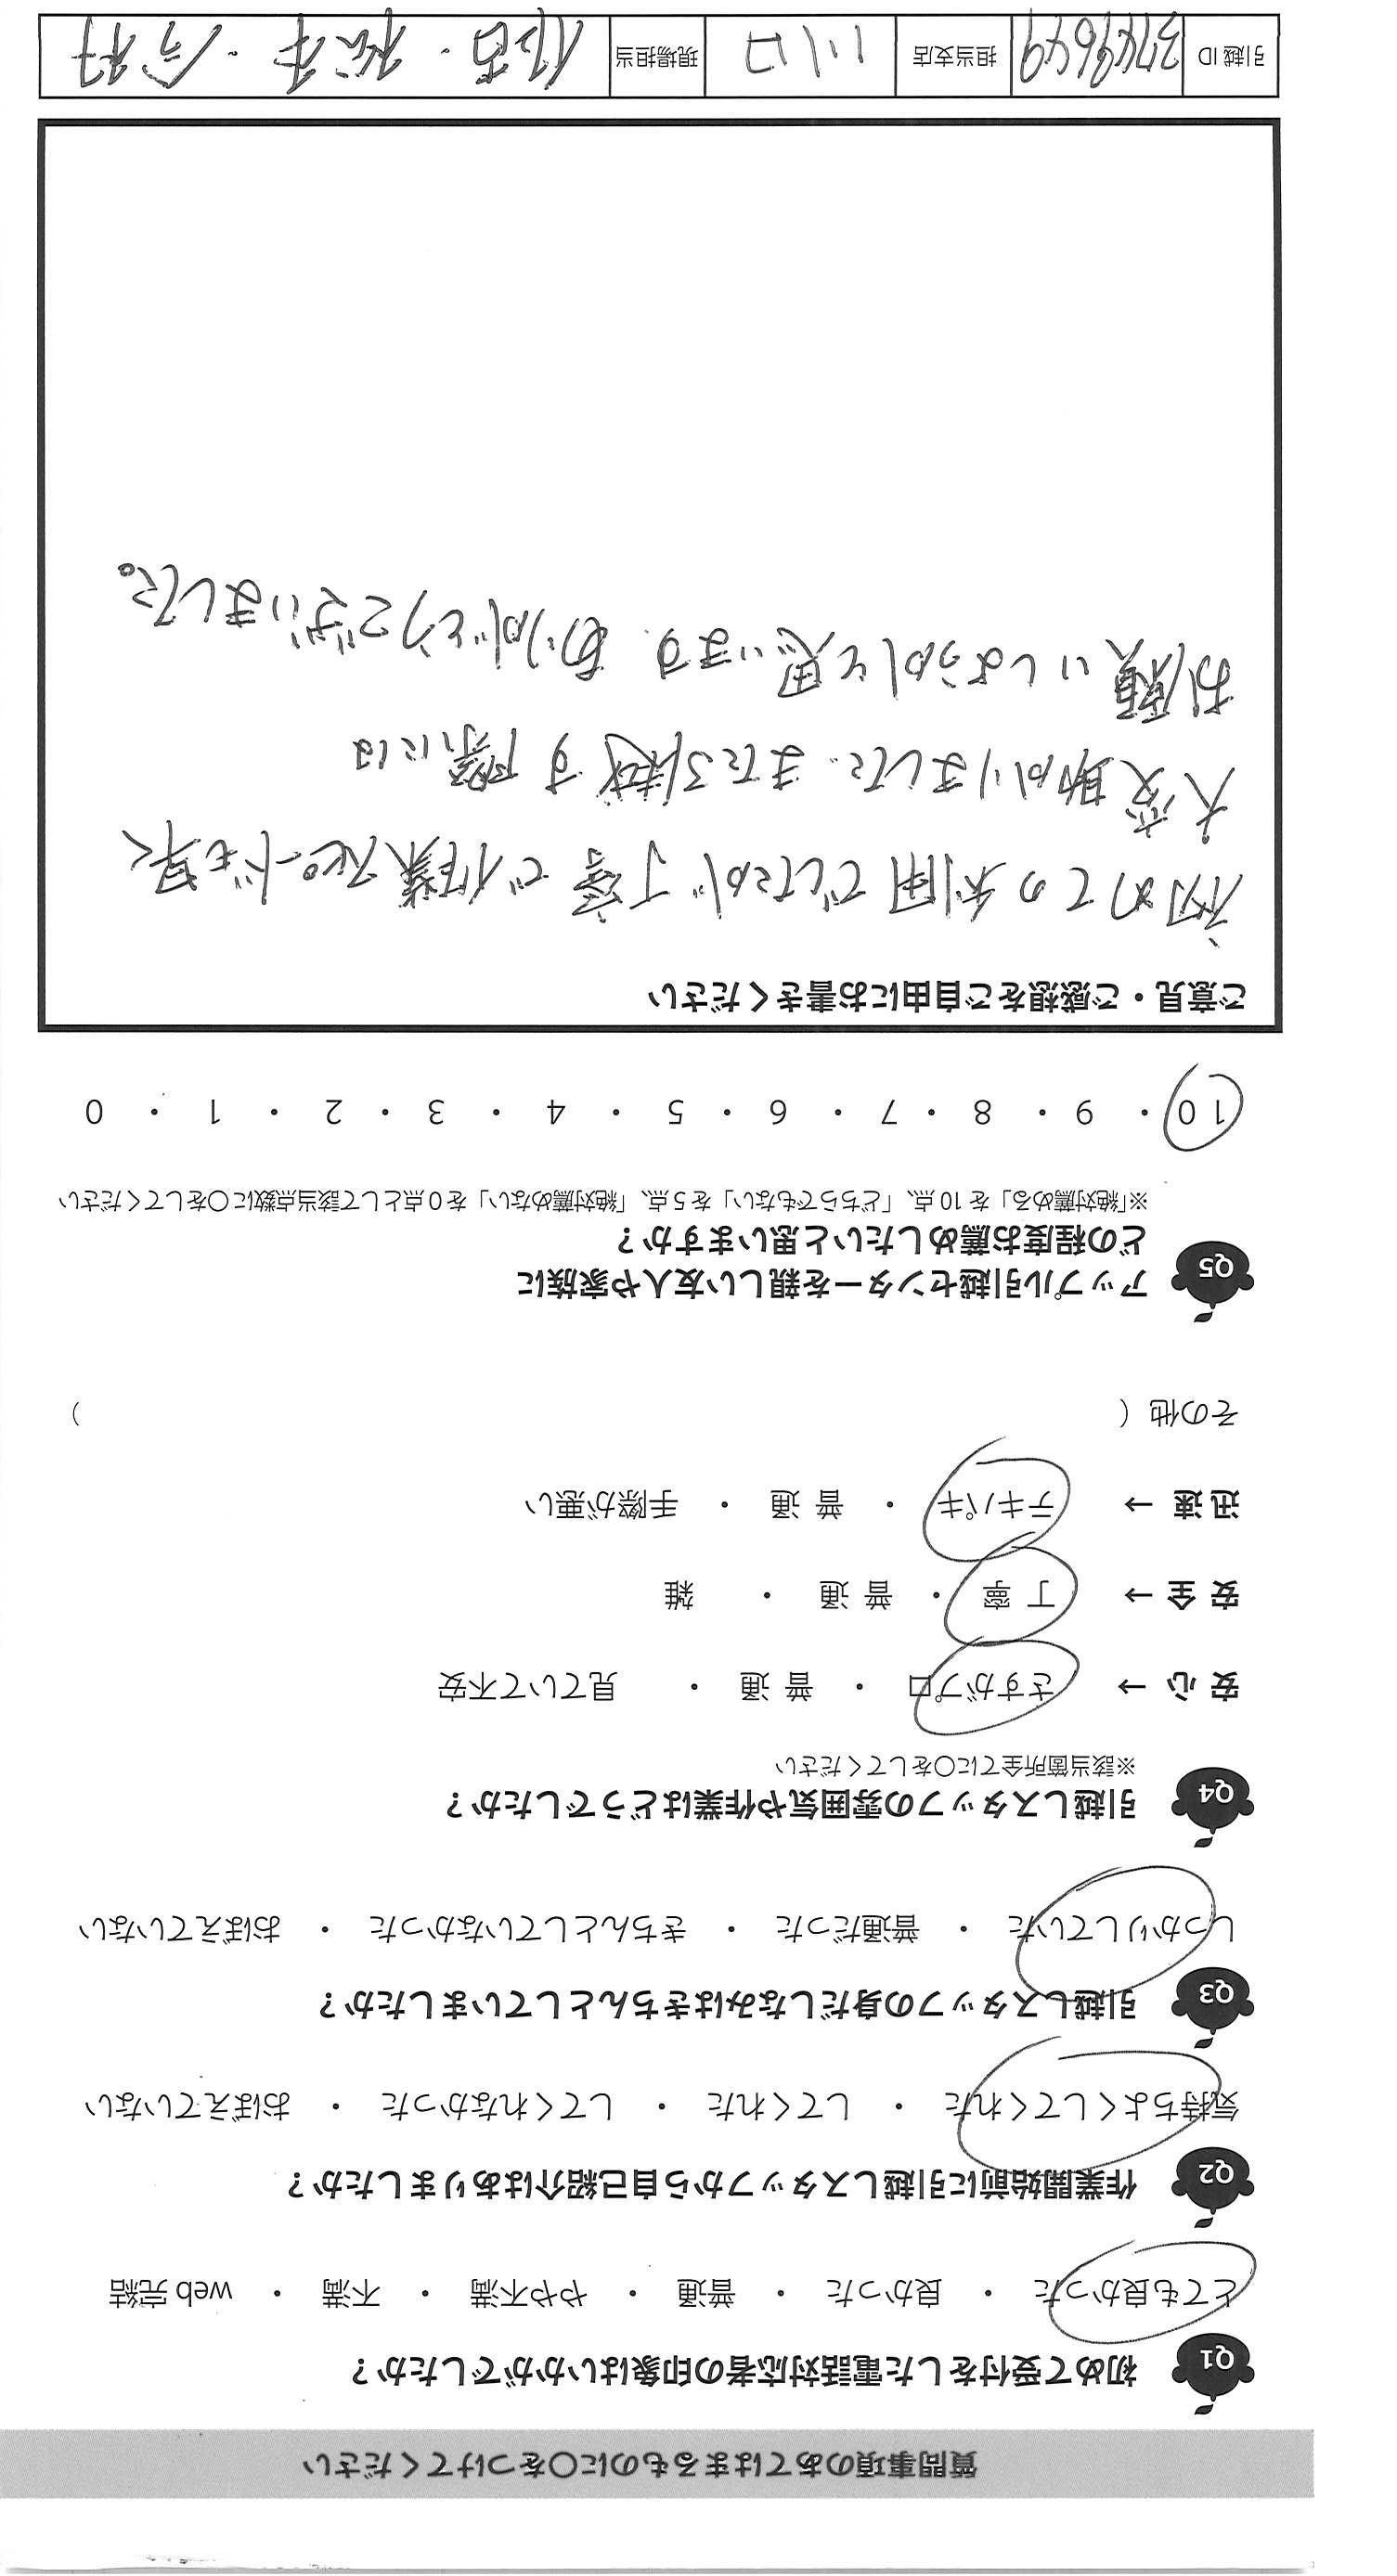 質問事項のあてはまるものに○をつけてください
Q1 初めて受付をした電話対応者の印象はいかがでしたか？
とても良かった ・ 良かった ・ 普通 ・ やや不満 ・ 不満 ・ web 完結
Q2 作業開始前に引越しスタッフから自己紹介はありましたか？
気持ちよくしてくれた ・ してくれた ・ してくれなかった ・ おぼえていない
Q3 引越しスタッフの身だしなみはきちんとしていましたか？
しっかりしていた ・ 普通だった ・ きちんとしていなかった ・ おぼえていない
Q4 引越しスタッフの雰囲気や作業はどうでしたか？
※該当箇所全てに○をしてください
安 心 → さすがプロ ・ 普 通 ・ 見ていて不安
安 全 → 丁 寧 ・ 普 通 ・ 雑
迅 速 → テキパキ ・ 普 通 ・ 手際が悪い
その他（ ）
Q5 アップル引越センターを親しい友人や家族に
どの程度お薦めしたいと思いますか？
※「絶対薦める」を 10 点、「どちらでもない」を 5 点、「絶対薦めない」を 0 点として該当点数に○をしてください
10 ・ 9 ・ 8 ・ 7 ・ 6 ・ 5 ・ 4 ・ 3 ・ 2 ・ 1 ・ 0
ご意見・ご感想をご自由にお書きください
初めての利用でしたが丁寧で作業スピードも早く
大変助かりました。また引越す際には
お願いしようかと思います。ありがとうございました。
引越 ID 3749649 担当支店 川口 現場担当 ・松本・今村